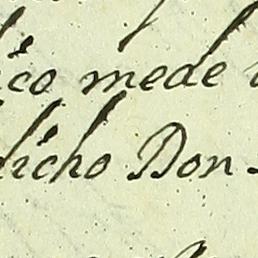 ico mede
dicho Don